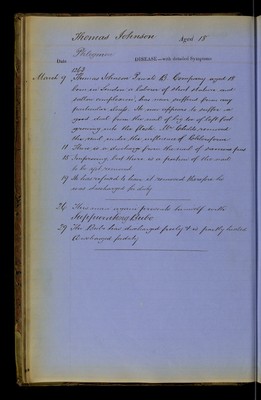 Thomas Johnson Aged 18
Phlegmon
Date DISEASE.—with detailed Symptoms
1862
March 9 Thomas Johnson Private B Company aged 18
born in London a labourer of short stature and
sallow complexion, has never suffered from any
particular He now appears to suffer a
good deal from the nail of big toe of left foot
growing into the flesh. Mr removed
the nail under the influence of Chloroform
11 There is a discharge from the seat of
15 Improving but there is a portion of the nail
to be yet removed
19 He has refused to have it removed therefore he
was discharged to duty
26 This man again presents himself with
Suppurating Bubo
29 The Bubo has discharged freely & is partly healed
discharged to duty